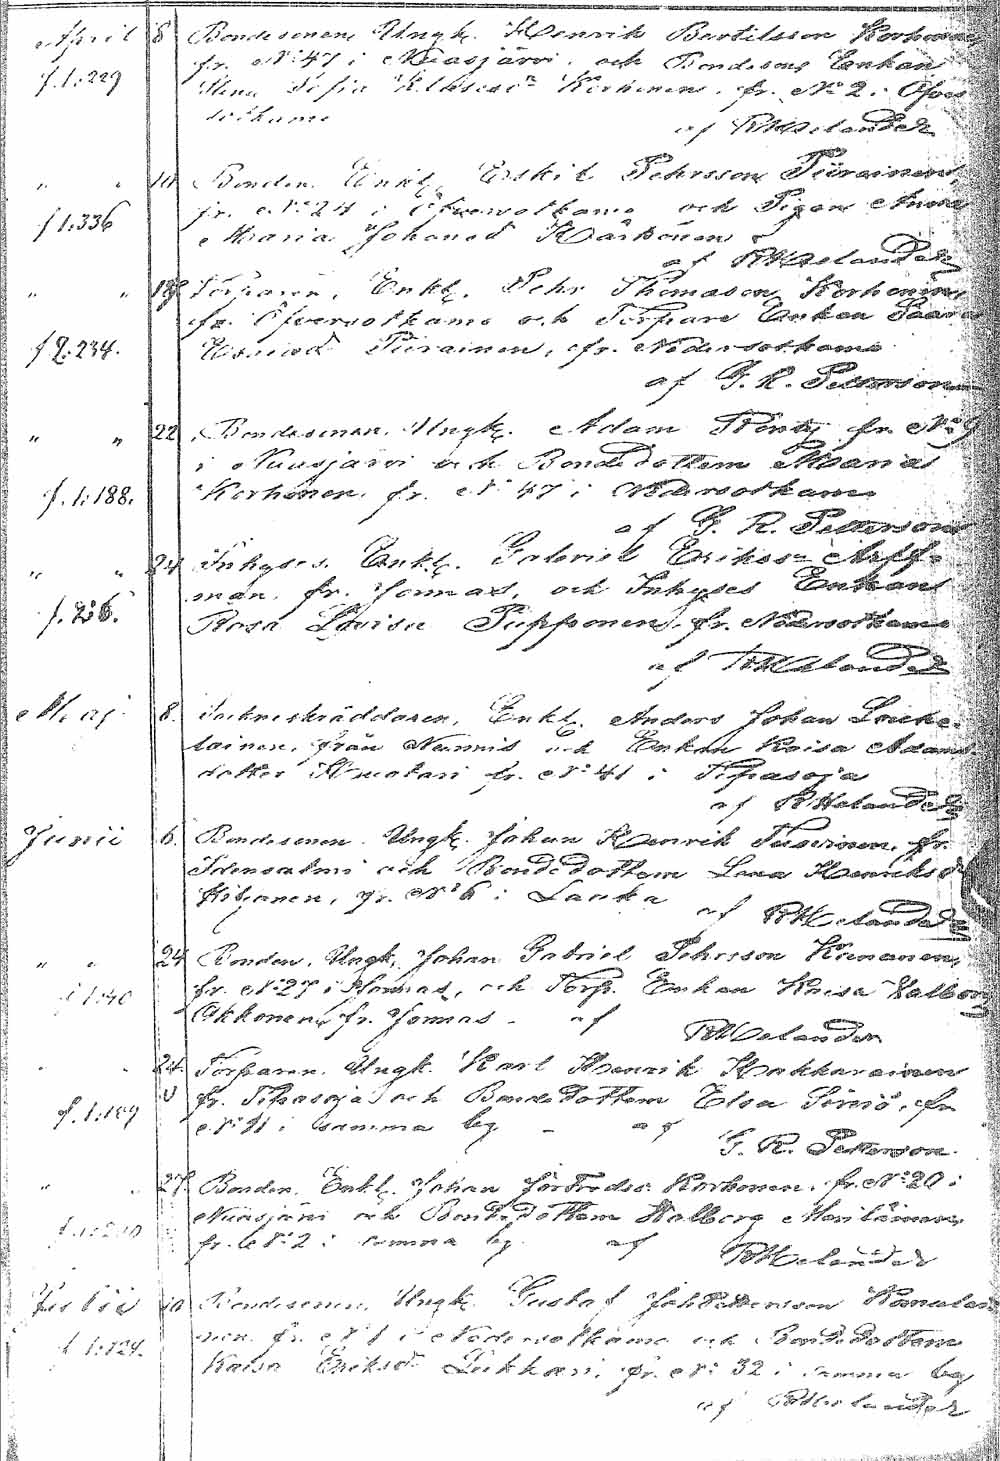 April 8 Bondesonen, Ungk. Henrik Bertilsson Korhonen
fr. No 47 i Nuasjärvi, och Bondesons Enkan
f. 1:229
Stina Sofia Klasesdr Korhonen, fr. No 2 i Öfver
sotkamo
af RHelander
" " 10 Bonden, Enkl. Eskil Pehrsson Piirainen,
fr. No 24 i Öfversotkamo och Pigan Anna
f 1:336
Maria Johansd Härkönen
af RHelander
" " 18 Torparen, Enkl. Pehr Thomason Korhonen
fr. Öfversotkamo och Torpare Enkan Saara
f 2:234.
Piirainen, fr. Nedersotkamo
af G. R. Petterson
" " 22 Bondesonen, Ungk. Adam Pönty fr. No 9
i Nuasjärvi och Bondedottern Maria
f. 1:188.
Korhonen fr. No 47 i Nedersotkamo
af G. R. Petterson
" " 24 Inhyses, Enkl. Gabriel Eriksson Arff-
man, fr. Jormas, och Inhyses Enkan
f. 2:6.
Rosa Lovisa Pupponen, fr. Nedersotkamo
af RHelander
Maj 8. Sockneskräddaren, Enkl. Anders Johan Louhe-
lainen, från Nurmis och Enkan Kaisa Adams
dotter Huotari fr. No 41 i Tipasoja
af RHelander
Junii 6. Bondesonen Ungk. Johan Henrik Tusvinen, fr.
Idensalmi och Bondedottern Lena Henriksd
Hiltunen, fr. No 6 i Lauka
af RHelander
" " 24 Bonden, Ungk. Johan Gabriel Pehrsson Kinnunen,
fr. No 27 i Jormas, och Torp. Enkan Kaisa Valborg
f 1:40
Okkonen, fr. Jormas - af
RHelander
" " 24. Torparen, Ungk. Karl Henrik Kakkarainen
fr. Tipasoja och Bondedottern Elsa Sirniö, fr.
f. 1:109
No 11 i samma by - af
G. R. Petterson.
" " 27. Bonden, Enkl. Johan Korhonen, fr. No 20 i
Nuasjärvi och Bondedottern Walborg Moilainen
fr. No 2 i samma by af
RHelander
Julii 10 Bondesonen, Ungk. Gustaf Joh Pettersson Komulai-
nen fr. No 1 i Nedersotkamo och Bondedottern
f 1:124.
Kaisa Eriksd Lukkari, fr. No 32 i samma by
af RHelander